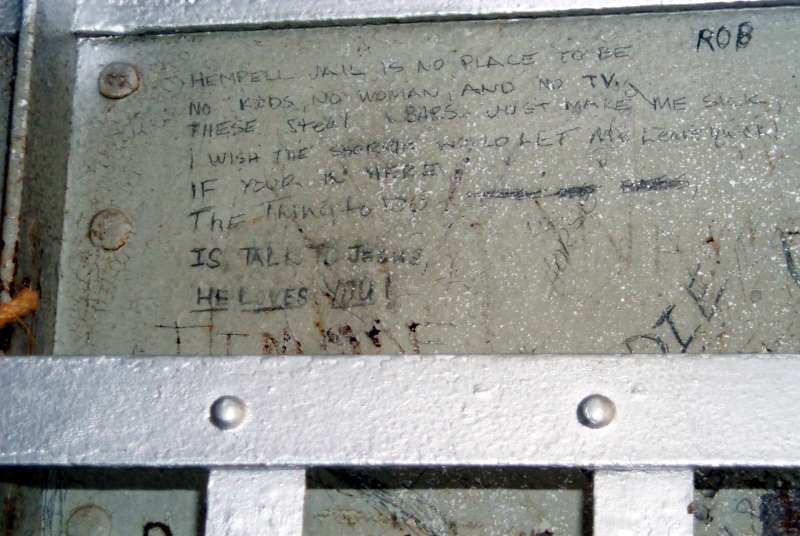 ROB
HEMPELL JAIL IS NO PLACE TO BE
NO KIDS, NO WOMAN, AND NO TV,
THESE Steel BARS JUST MAKE ME SICK,
I WISH THE WOULD LET Me Leave quick!
IF YOUR IN HERE,
THE THING to DO
IS TALK TO JESUS,
HE LOVES YOU!
DIE